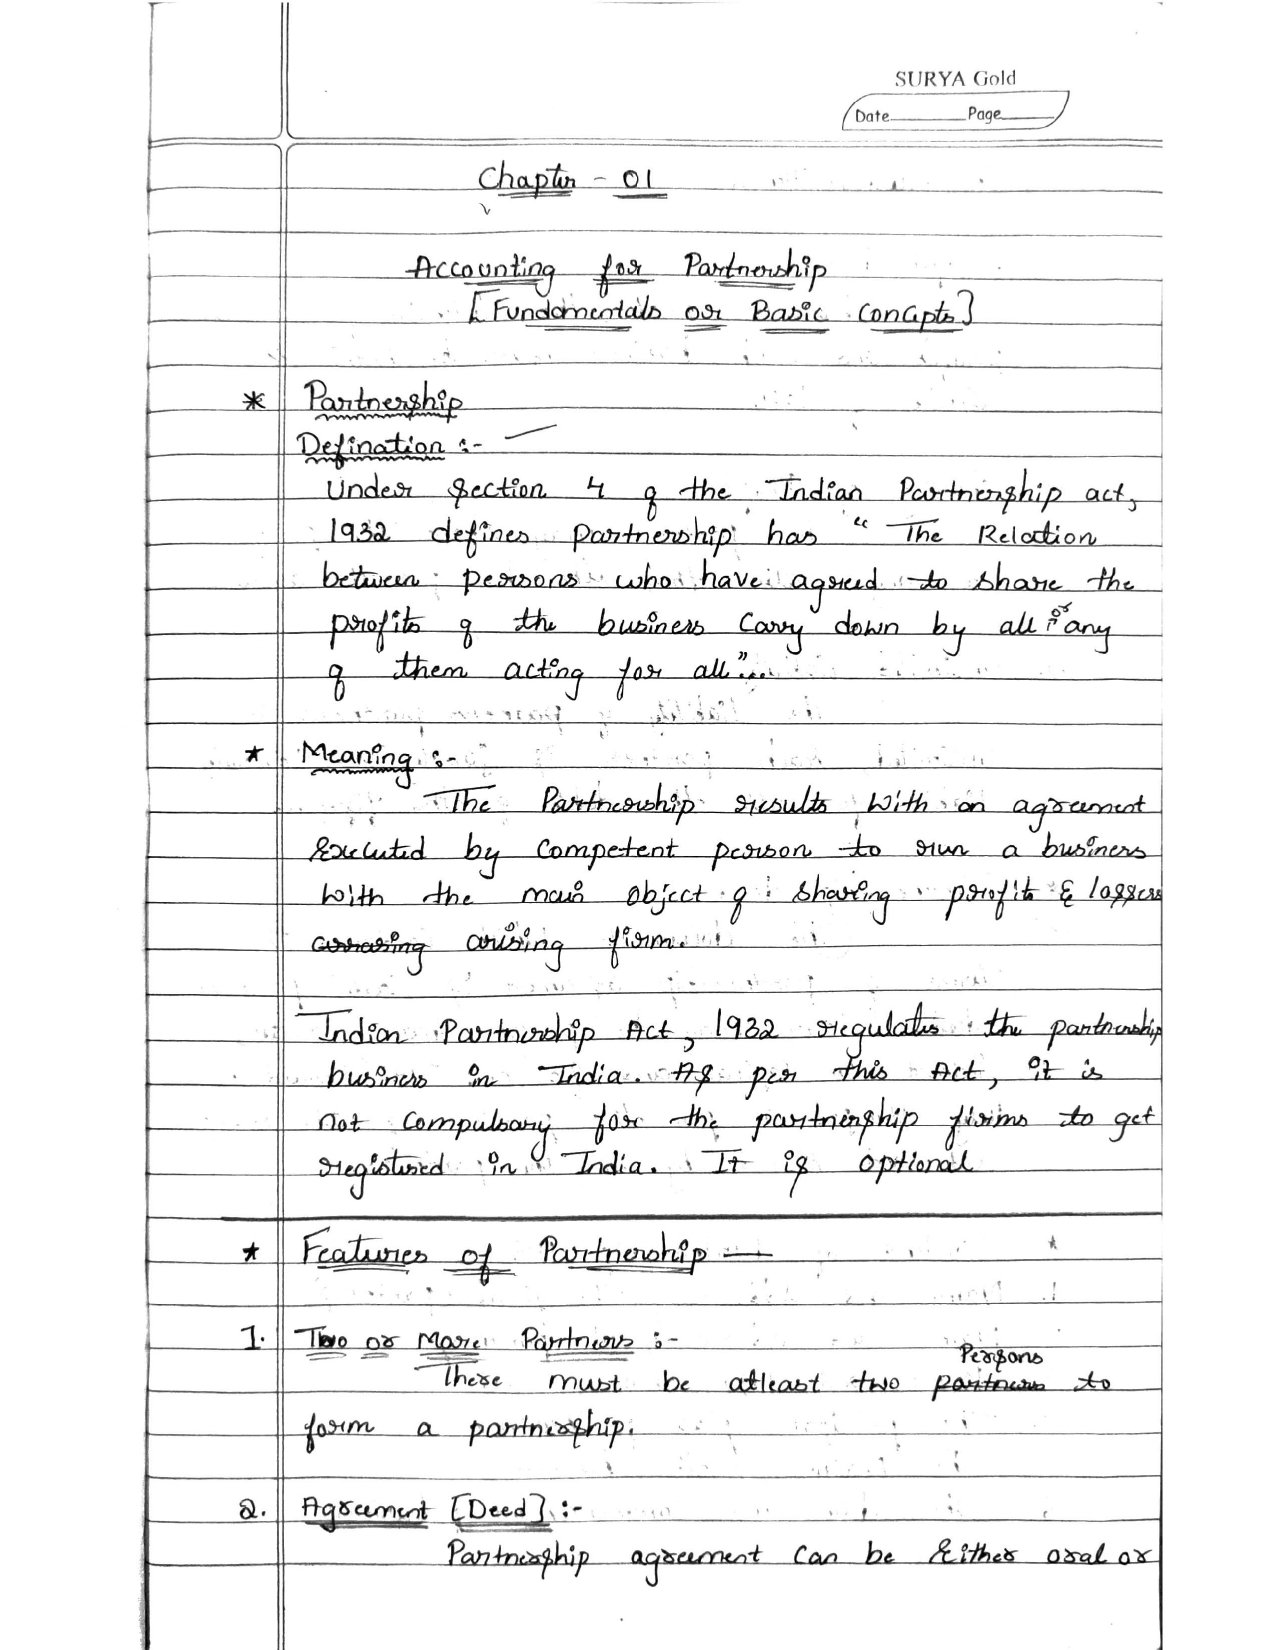 SURYA Gold
Date Page
Chapter - 01
Accounting for Partnership
[Fundamentals or Basic Concepts]
* Partnership
Defination :-
Under Section 4 of the Indian Partnership act,
1932 defines partnership has " The Relation
between persons who have agreed to share the
profits of the business Carry down by all or any
of them acting for all"...
* Meaning :-
The Partnership results with an agreement
Executed by Competent person to run a business
with the main object of sharing profit & lossess
arising firm.
Indian Partnership Act, 1932 regulates the partnership
business in India. As per this Act, it is
not Compulsary for the partnership firms to get
registered in India. It is optional
* Features of Partnership —
1. Two or More Partners :-
Persons
There must be atleast two partners to
form a partnership.
2. Agreement [Deed] :-
Partnership agreement Can be Either oral or